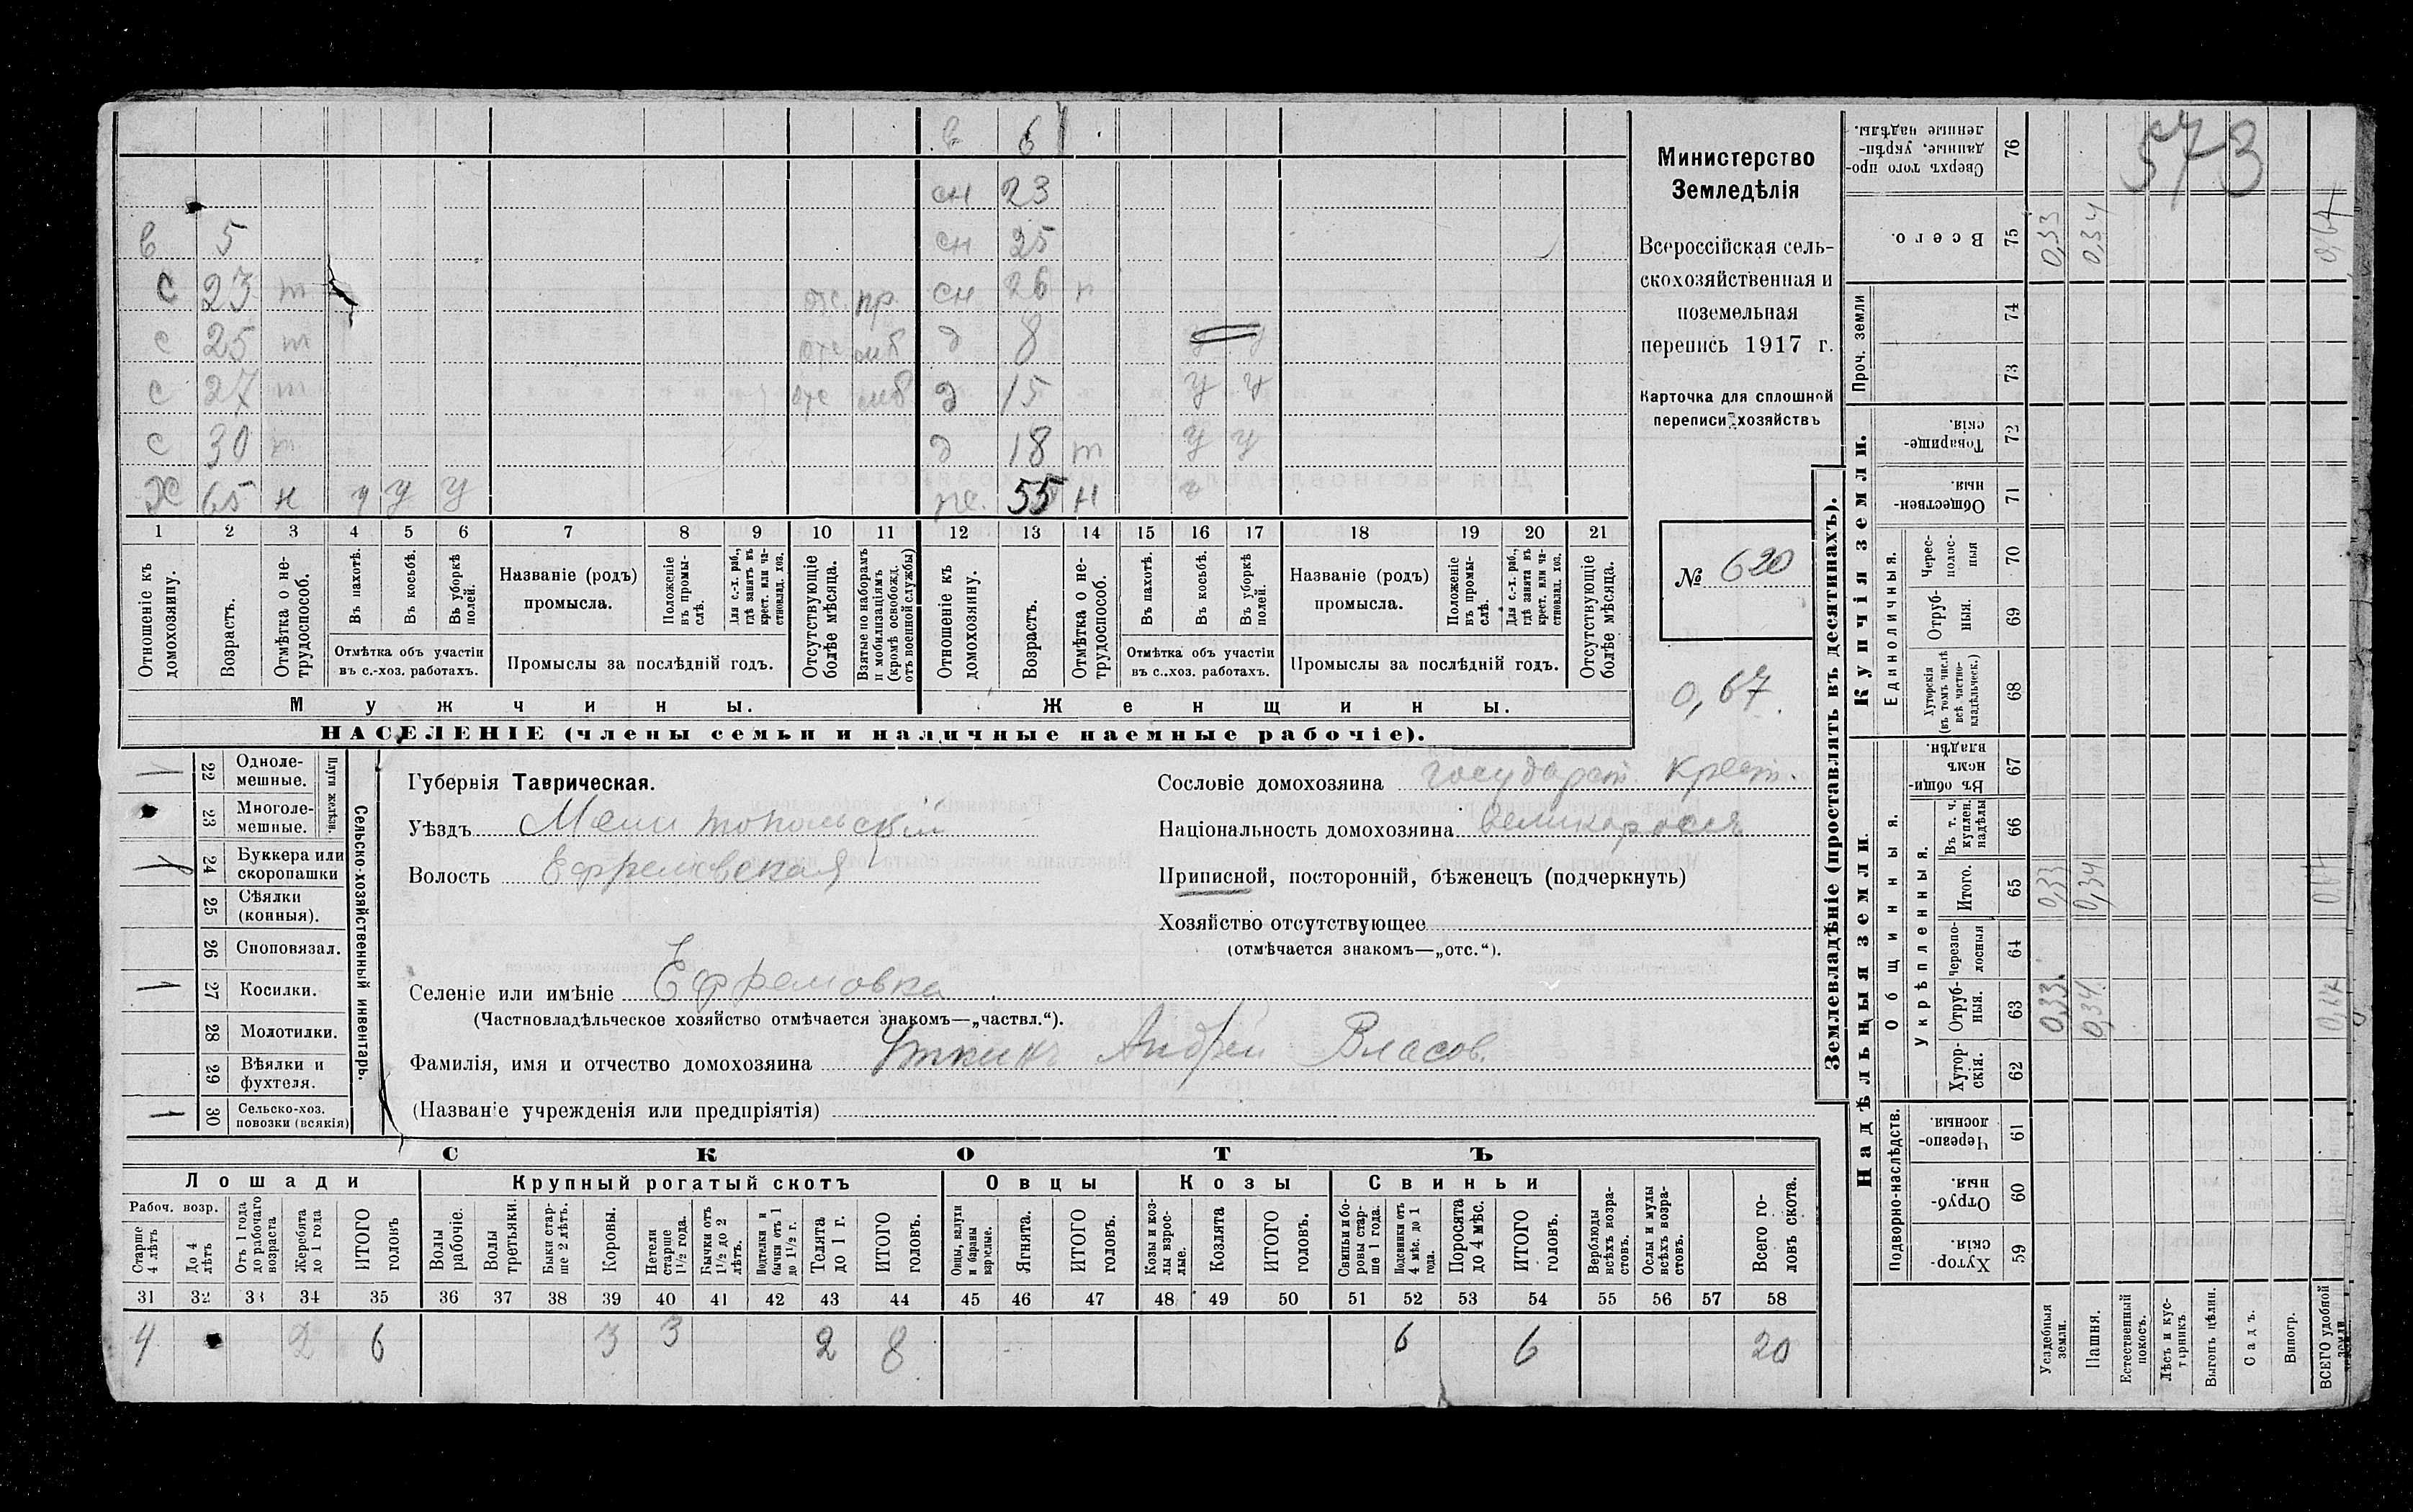 в 6
сн 23
в 5 сн 25
с 23 т отс. пр. сн 26 п
с 25 т отс моб д 8
с 27 т отс моб д 15 у у
с 30 т д 18 т у у
Х 65 н у у у ж. 55 н ч
1 2 3 4 5 6 7 8 9 10 11 12 13 14 15 16 17 18 19 20 21
Отношеніе къ домохозяину.
Возрастъ.
Отмѣтка о нетрудоспособ.
Въ пахотѣ.
Въ косьбѣ.
Въ уборкѣ полей.
Отмѣтка объ участіи
въ с.-хоз. работахъ.
Названіе (родъ)
промысла.
Положеніе въ промыслѣ.
Для с.-х. раб., гдѣ занятъ въ крест. или частновлад. хоз.
Промыслы за послѣдній годъ.
Отсутствующіе болѣе мѣсяца.
Взятые по наборамъ и мобилизаціямъ (кромѣ освобожд. отъ военной службы)
Отношеніе къ домохозяину.
Возрастъ.
Отмѣтка о нетрудоспособ.
Въ пахотѣ.
Въ косьбѣ.
Въ уборкѣ полей.
Отмѣтка объ участіи
въ с.-хоз. работахъ.
Названіе (родъ)
промысла.
Положеніе въ промыслѣ.
Для с.-х. раб., гдѣ занята въ крест. или частновлад. хоз.
Промыслы за послѣдній годъ.
Отсутствующіе болѣе мѣсяца.
Мужчины. Женщины.
НАСЕЛЕНІЕ (члены семьи и наличные наемные рабочіе).
Министерство
Земледѣлія
Всероссійская сель-
скохозяйственная и
поземельная
перепись 1917 г.
Карточка для сплошной
переписи хозяйствъ
№ 620
0,67.
22 Однолемешные.
23 Многолемешные.
Плуги желѣзн.
24 Буккера или скоропашки
25 Сѣялки (конныя).
26 Сноповязал.
27 Косилки.
28 Молотилки.
29 Вѣялки и фухтеля.
30 Сельско-хоз. повозки (всякія)
Сельско-хозяйственный инвентарь.
Губернія Таврическая.
Уѣздъ Мелитопольскій
Волость Ефремовская
Селеніе или имѣніе Ефремовка
(Частновладѣльческое хозяйство отмѣчается знакомъ—„частвл.“).
Фамилія, имя и отчество домохозяина Уткинъ Андрей Власов.
(Названіе учрежденія или предпріятія)
Сословіе домохозяина государст. крест.
Національность домохозяина великороссъ
Приписной, посторонній, бѣженецъ (подчеркнуть)
Хозяйство отсутствующее
(отмѣчается знакомъ—„отс.“).
СКОТЪ
Лошади Крупный рогатый скотъ Овцы Козы Свиньи
Рабоч. возр.
Старше 4 лѣтъ
До 4 лѣтъ
Отъ 1 года до рабочаго возраста
Жеребята до 1 года
ИТОГО головъ
Волы рабочіе.
Волы третьяки.
Быки старше 2 лѣтъ.
Коровы.
Нетели старше 1½ года.
Бычки отъ 1½ до 2 лѣтъ.
Подтелки и бычки отъ 1 до 1½ г.
Телята до 1 г.
ИТОГО головъ.
Овцы, валухи и бараны взрослые.
Ягнята.
ИТОГО головъ.
Козы и козлы взрослые.
Козлята
ИТОГО головъ.
Свиньи и боровы старше 1 года.
Подсвинки отъ 4 мѣс. до 1 года.
Поросята до 4 мѣс.
ИТОГО головъ.
Верблюды всѣхъ возрастовъ.
Ослы и мулы всѣхъ возрастовъ.
Всего головъ скота.
31 32 33 34 35 36 37 38 39 40 41 42 43 44 45 46 47 48 49 50 51 52 53 54 55 56 57 58
4 2 6 3 3 2 8 6 6 20
Землевладѣніе (проставлять въ десятинахъ).
Надѣльныя земли. Купчія земли. Проч. земли
Подворно-наслѣдств. Общинныя. Укрѣпленныя. Единоличныя.
59 Хуторскія.
60 Отрубныя.
61 Черезполосныя.
62 Хуторскія.
63 Отрубныя. 0,33. 0,34. 0,67
64 Черезполосныя
65 Итого. 0,33 0,34 0,67
66 Въ т. ч. куплен. надѣлы
67 Въ общинномъ владѣн.
68 Хуторскія (въ томъ числѣ всѣ частновладѣльческ.)
69 Отрубныя.
70 Чересполосныя
71 Общественныя.
72 Товарищескія.
73
74
75 Всего. 0,33 0,34 0,67
76 Сверхъ того проданные, укрѣпленные надѣлы.
573
Усадебныя земли.
Пашня.
Естественный покосъ.
Лѣсъ и кустарникъ.
Выгонъ цѣлин.
Садъ.
Виногр.
ВСЕГО удобной земли